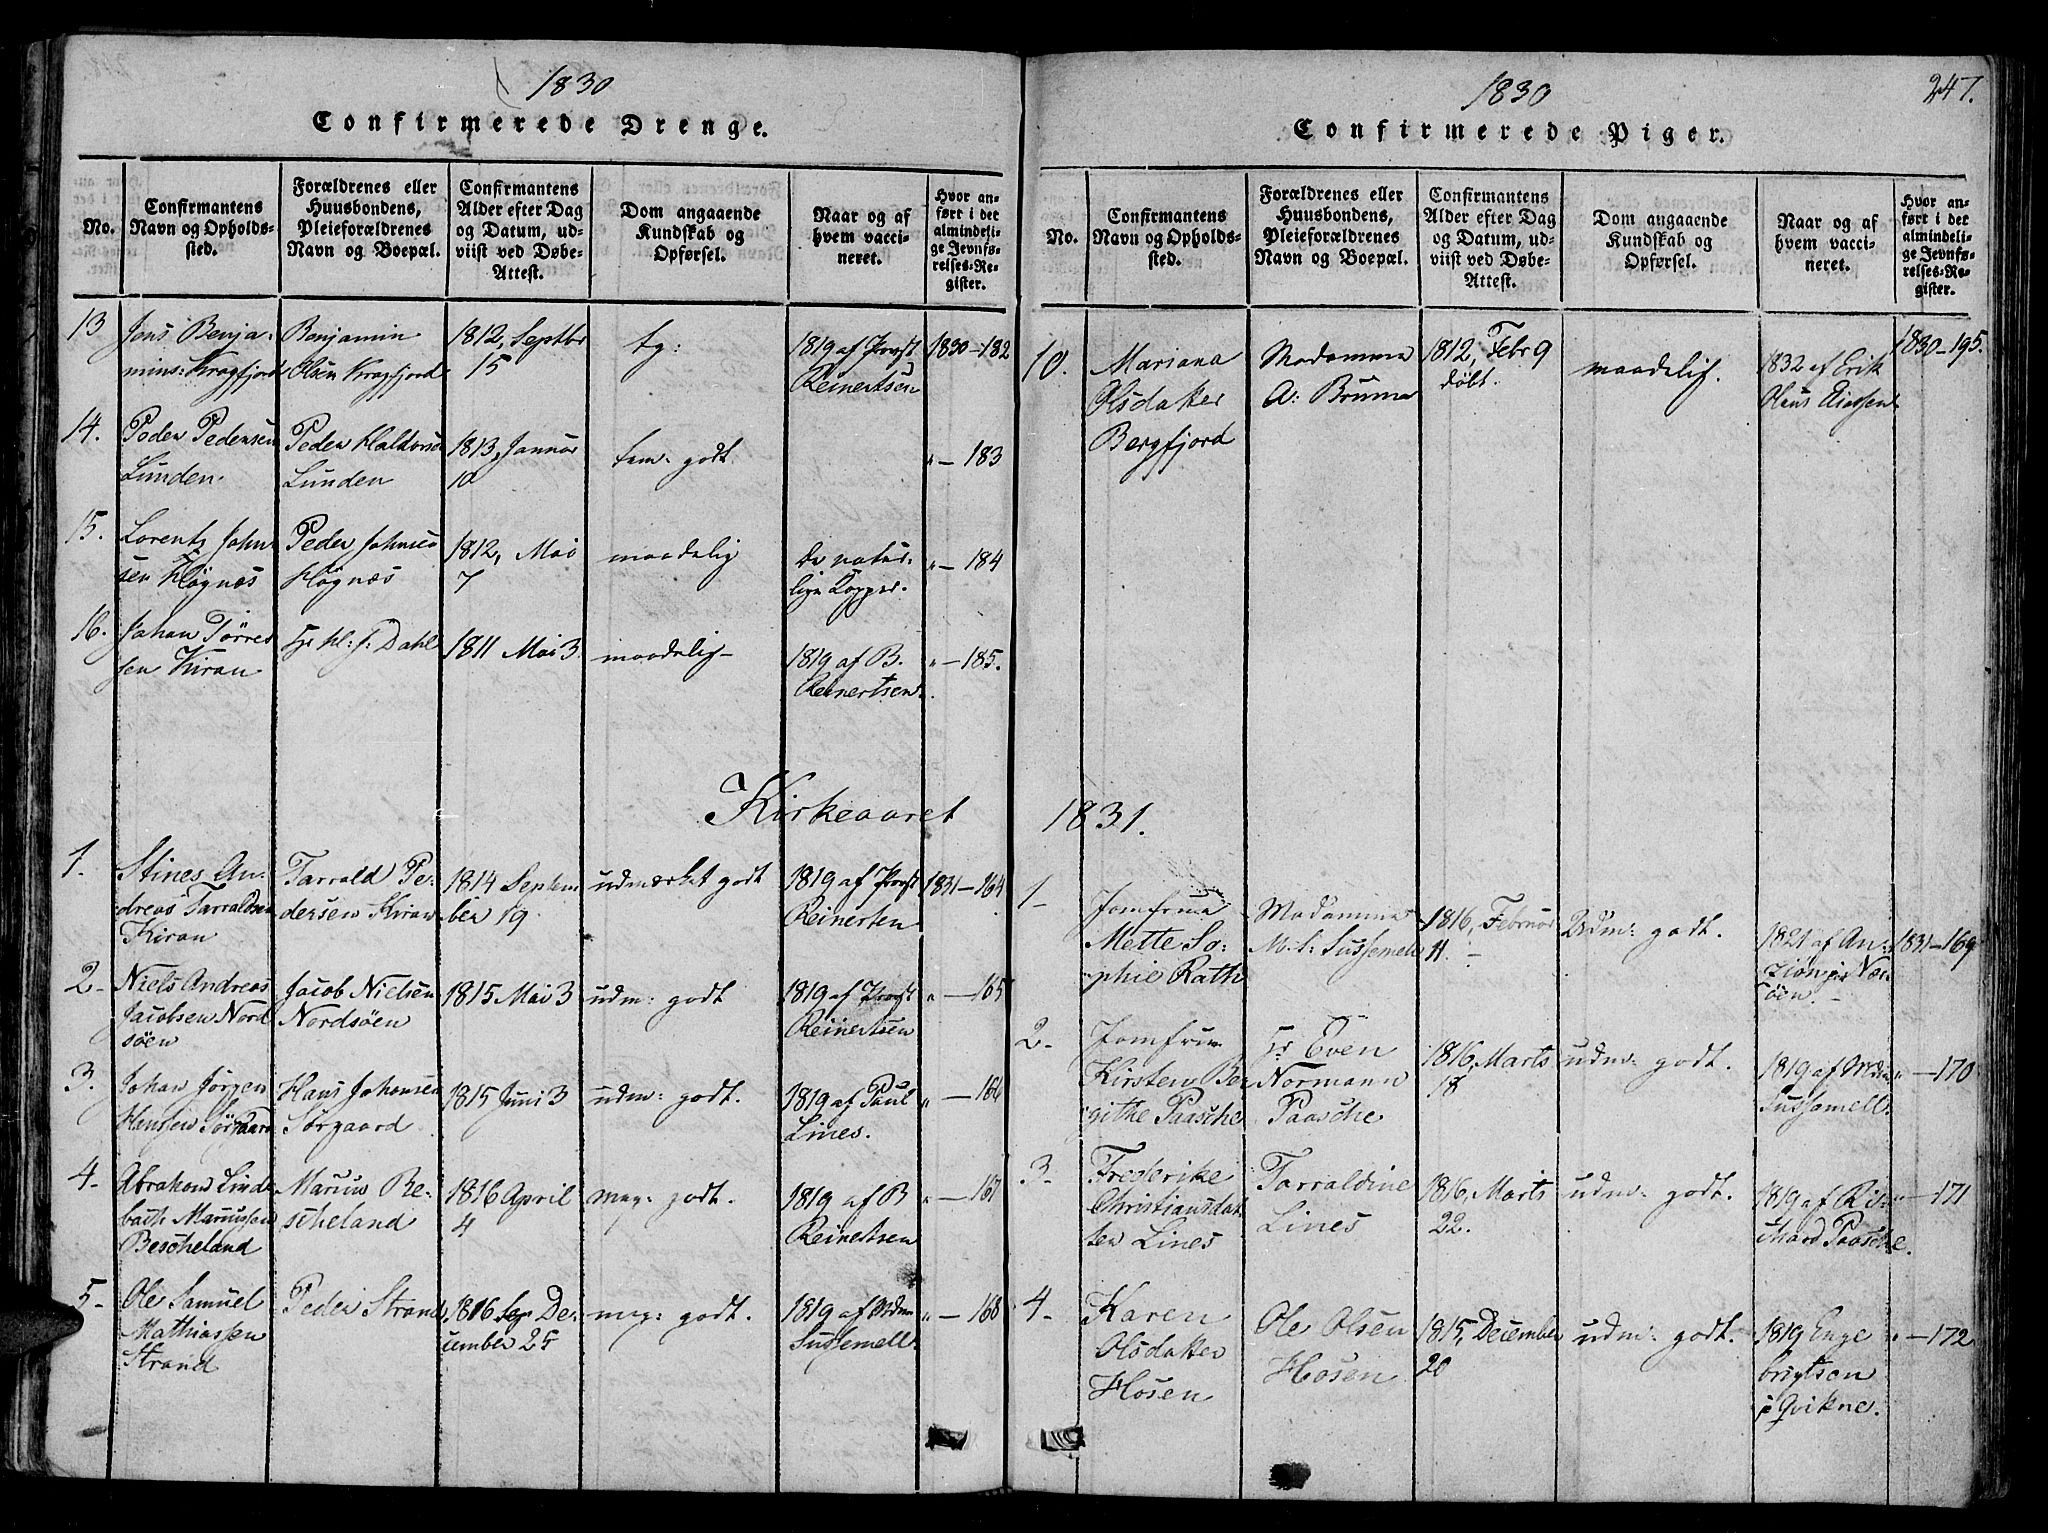 1830
Confirmerede Drenge.
No.
Confirmantens
Navn og Opholds-
sted.
Forældrenes eller
Huusbondens,
Pleieforældrenes
Navn og Boepæl.
Confirmantens
Alder efter Dag
og Datum, ud-
viist ved Døbe-
Attest.
Dom angaaende
Kundskab og
Opførsel.
Naar og af
hvem vacci-
neret.
Hvor an-
ført i det
almindeli-
ge Jevnfø-
relses-Re-
gister.
13
Jens Benja-
mins: Kragfjord
Benjamin
Olsen Kragfjord
1812, Septbr
15
tg:
1819 af Provst
Reinertsen
1830-182
14.
Peder Pedersen
Lunden
Peder Haldorse
Lunden
1813, Januar
10
tem: godt
" - 183
15.
Lorents John-
sen Høgnæs
Peder Johnsen
Høgnæs
1812, Mai
7
maadelig
De natur-
lige Kopper.
" - 184
16.
Johan Tørres
sen Kiran
Hr Dahl
1811 Mai 3
maadelig
1819 af B.
Reinertsen
" - 185.
Kirkeaaret
1.
Stines An-
dreas Tarraldsen
Kiran
Tarrald Pe-
dersen Kiran
1814 Septem
ber 19
udmærket godt
1819 af Provst
Reinerten
1831-164
2-
Niels Andreas
Jacobsen Nord
söen
Jacob Nielsen
Nordsöen
1815 Mai 3
udm: godt
1819 af Provst
Reinertsen
" -165
3.
Johan Jörgen
Hansen Sørgaard
Hans Johansen
Sørgaard
1815 Juni 3
udm: godt.
1819 af Paul
Lines.
" -166
4-
Abraham Linde
bach Mariussen
Bescheland
Marius Be-
scheland
1816 April
4
meg: godt.
1819 af B
Reinertsen
" -167
5-
Ole Samuel
Mathiassen
Strand
Peder Strand
1816 Sep De-
cember 25
meg: godt.
1819 af Mdm
Sussemell.
" - 168
1830
247.
Confirmerede Piger.
No.
Confirmantens
Navn og Opholds-
sted.
Forældrenes eller
Huusbondens,
Pleieforældrenes
Navn og Boepæl.
Confirmantens
Alder efter Dag
og Datum, ud-
viist ved Døbe-
Attest.
Dom angaaende
Kundskab og
Opførsel.
Naar og af
hvem vacci-
neret.
Hvor an-
ført i det
almindeli-
ge Jevnfø-
relses-Re-
gister.
10.
Mariana
Olsdatter
Bergfjord
Madamme
A: Bruma
1812, Febr 9
döbt.
maadelig.
1832 af Erik
Olaus Eliassen
1830-195.
1831.
1-
Jomfrue
Mette So-
phie Rath
Madamme
M. S: Sussemell
1816, Februar
11.
Udm: godt.
1821 af An-
Næs
söen.
1831-169
2-
Jomfrue
Kirsten Ber
githe Paasche
Hr Even
Normann
Paasche
1816, Marts
18
udm: godt.
1819 af Mdm
Sussemell.
" -170
3.
Frederike
Christiansdat
ter Lines
Tarraldine
Lines
1816, Marts
22.
udm: godt.
1819 af Ri-
chard Paasche.
" -171
4-
Karen
Olsdatter
Hosen
Ole Olsen
Hosen
1815, December
20
udm: godt.
1819 Enge
brigtsen
i Qvikne.
" -172